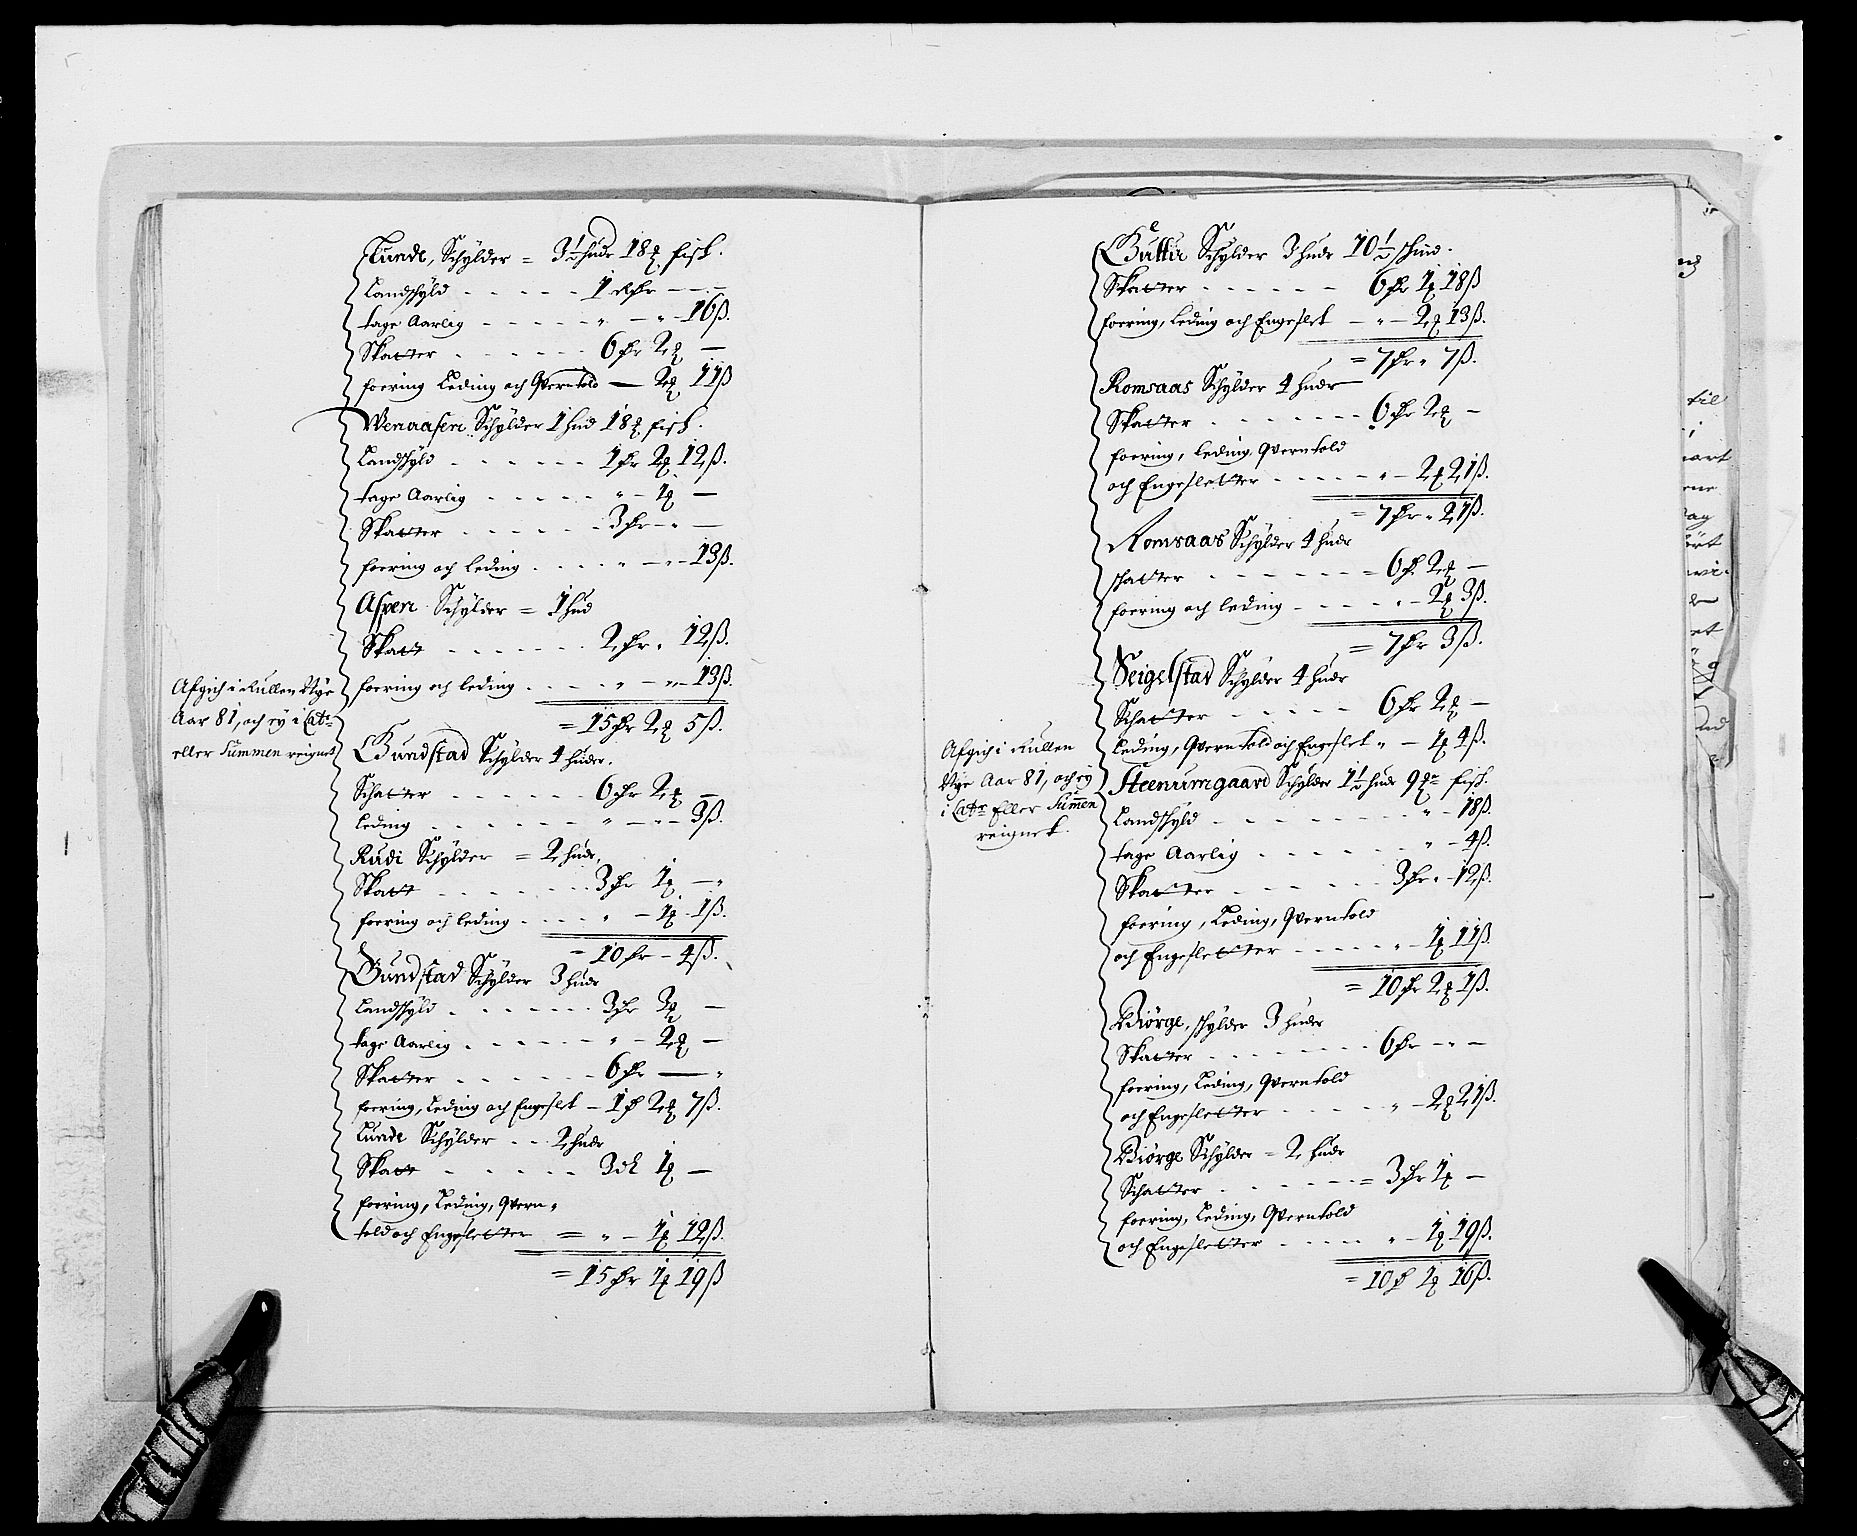 Lunde, Schÿlder = 3½ hude 18 ℔ fisk.
Landschÿld - - - - - 1 Rdr - - -
tage Aarlig - - - - - „ - „ - 16 ß.
Skatter - - - - - - 6 dr 2 ℔ -
foering Leding och Qverntold - 2 ℔ 11 ß
Wenaasen Schÿlder 1 hud 18 ℔ fisk.
Landschÿld - - - - - 1 dr 2 ℔ 12 ß.
tage Aarlig - - - - - „ - 1 ℔ -
Skatter - - - - - - 3 dr - „ -
foering och leding - - - - „ - „ - 13 ß.
Aspen Schÿlder = 1 hud
Skatt - - - - - - 2 dr „ 12 ß.
foering och leding - - - - „ - „ - 13 ß.
= 15 dr 2 ℔ 5 ß.
Afgich i Rullen Nye
Aar 81, och ey i Catr.
eller Summen reignet
Gundstad Schÿlder 4 huder.
Schatter - - - - - - 6 dr 2 ℔ -
leding - - - - - - „ - „ - 3 ß.
Rudi Schÿlder = 2 hude.
Skatt - - - - - - 3 dr 1 ℔ - „
foering och leding - - - - „ - 1 ℔ 1 ß.
= 10 dr - 4 ß.
Gundstad Schÿlder 3 hude
Landschÿld - - - - - - 3 dr 3 ℔ -
tage Aarlig - - - - - „ - 2 ℔ -
Skatter - - - - - - 6 dr - „
foering, Leding och Engeslet - 1 d 2 ℔ 7 ß.
Lunde Schÿlder - - 2 hude
Skatt - - - - - - 3 dr 1 ℔ -
foering, Leding, Qvern-
told och Engesletter = „ - 1 ℔ 12 ß.
= 15 dr 1 ℔ 19 ß
Schÿlder 3 hude 10½ schind.
Skatter - - - - - - 6 dr 1 ℔ 18 ß
foering, Leding och Engeslet - „ - 2 ℔ 13 ß.
= 7 dr „ 7 ß.
Romsaas Schÿlder 4 hude
Skatter - - - - - - 6 dr 2 ℔ -
foering, leding, Qverntold
och Engesletter - - - - - „ - 2 ℔ 21 ß.
= 7 dr „ 21 ß.
Romsaas Schÿlder 4 hude
schatter - - - - - - = 6 d. 2 ℔ -
foering och leding - - - - - „ - 2 ℔ 3 ß.
= 7 dr 3 ß.
Seigelstad Schÿlder 4 hude
Schatter - - - - - 6 dr 2 ℔ -
Leding, Qverntold och Engeslet „ - 1 ℔ 4 ß.
Afgich i Rullen
Nye Aar 81, och ey
i Catr. Eller Summen
reignet.
Steenumgaard Schÿlder 1½ hud 9 ℔ fisk.
Landschÿld - - - - - - - „ - 18 ß.
tage Aarlig - - - - - - „ - 4 ß.
Skatter - - - - - - 3 dr „ - 12 ß.
foering, Leding, Qverntold
och Engesletter - - - - - „ - 1 ℔ 11 ß.
= 10 dr 2 ℔ 1 ß.
Biørge, schylder 3 huder
Skatter - - - - - - - 6 dr - „ -
foering, Leding, Qverntold
och Engesletter - - - - - „ - 2 ℔ 21 ß.
Biørge Schÿlder = 2 hude
Schatter - - - - - - = 3 dr 1 ℔ -
foering, Leding, Qverntold
och Engesletter - - - - - „ - 1 ℔ 19 ß.
= 10 d 1 ℔ 16 ß.
til